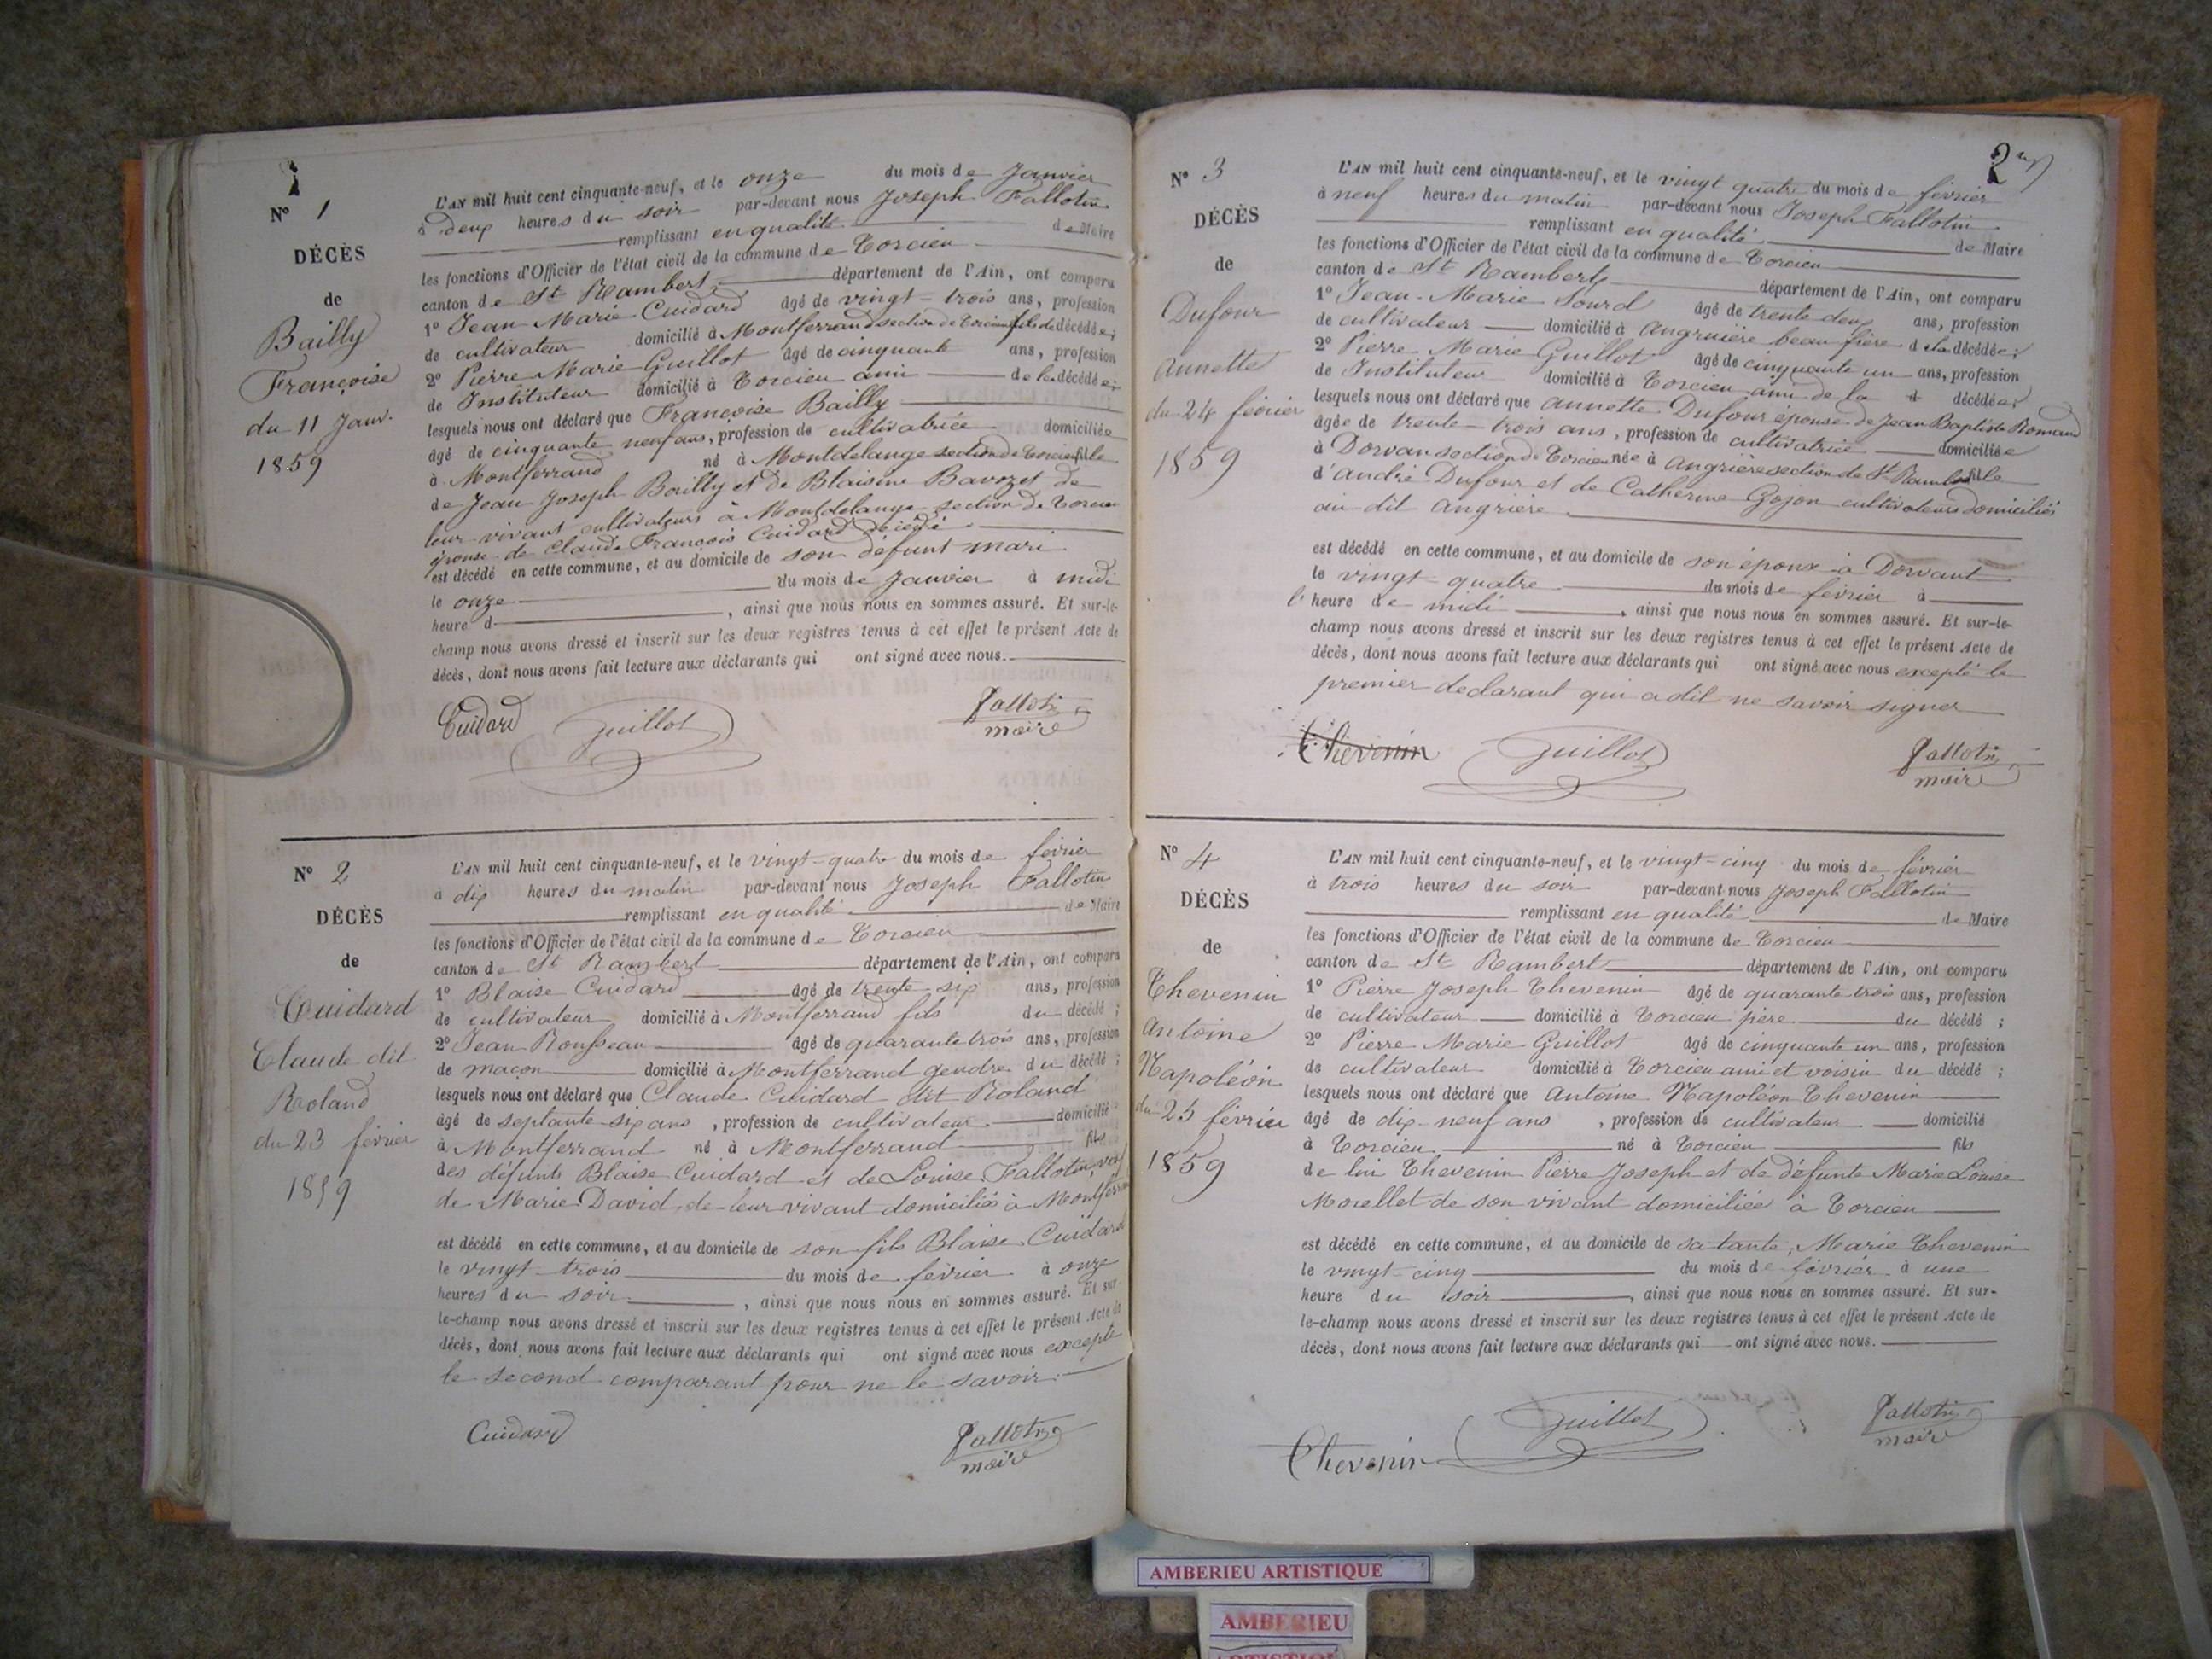 1
N° 1
DÉCÈS
de
Bailly
Françoise
du 11 Janv.
1859
L'AN mil huit cent cinquante-neuf, et le onze du mois de Janvier
à deux heures du soir par-devant nous Joseph Fallotin
remplissant en qualité de Maire
les fonctions d'Officier de l'état civil de la commune de Torcieu
canton de St Rambert département de l'Ain, ont comparu
1° Jean Marie Cuidard âgé de vingt-trois ans, profession
de cultivateur domicilié à Montferrand section de Torcieu fils de la décédée;
2° Pierre Marie Guillot âgé de cinquante ans, profession
de Instituteur domicilié à Torcieu ami de la décédée;
lesquels nous ont déclaré que Françoise Bailly
âgé de cinquante neuf ans, profession de cultivatrice domiciliée
à Montferrand né à Montdelange section de Torcieu fille
de Jean Joseph Bailly et de Blaisine Bavozet de
leur vivant cultivateurs à Montdelange section de Torcieu
épouse de Claude François Cuidard décédé
est décédé en cette commune, et au domicile de son défunt mari
le onze du mois de Janvier à midi
heure d , ainsi que nous nous en sommes assuré. Et sur-le-
champ nous avons dressé et inscrit sur les deux registres tenus à cet effet le présent Acte de
décès, dont nous avons fait lecture aux déclarants qui ont signé avec nous.
Cuidard Guillot Fallotin
maire
N° 2
DÉCÈS
de
Cuidard
Claude dit
Roland
du 23 février
1859
L'AN mil huit cent cinquante-neuf, et le vingt-quatre du mois de février
à dix heures du matin par-devant nous Joseph Fallotin
remplissant en qualité de Maire
les fonctions d'Officier de l'état civil de la commune de Torcieu
canton de St Rambert département de l'Ain, ont comparu
1° Blaise Cuidard âgé de trente six ans, profession
de cultivateur domicilié à Montferrand fils du décédé;
2° Jean Rousseau âgé de quarante trois ans, profession
de maçon domicilié à Montferrand gendre du décédé;
lesquels nous ont déclaré que Claude Cuidard dit Roland
âgé de septante-six ans, profession de cultivateur domicilié
à Montferrand né à Montferrand fils
des défunts Blaise Cuidard et de Louise Fallotin, veuf
de Marie David, de leur vivant domiciliés à Montferrand
est décédé en cette commune, et au domicile de son fils Blaise Cuidard
le vingt trois du mois de février à onze
heures du soir , ainsi que nous nous en sommes assuré. Et sur-
le-champ nous avons dressé et inscrit sur les deux registres tenus à cet effet le présent Acte de
décès, dont nous avons fait lecture aux déclarants qui ont signé avec nous excepté
le second comparant pour ne le savoir.
Cuidard Fallotin
maire
2
N° 3
DÉCÈS
de
Dufour
Annette
du 24 février
1859
L'AN mil huit cent cinquante-neuf, et le vingt quatre du mois de février
à neuf heures du matin par-devant nous Joseph Fallotin
remplissant en qualité de Maire
les fonctions d'Officier de l'état civil de la commune de Torcieu
canton de St Rambert département de l'Ain, ont comparu
1° Jean-Marie Sourd âgé de trente deux ans, profession
de cultivateur domicilié à Angrière beau frère de la décédée;
2° Pierre Marie Guillot âgé de cinquante un ans, profession
de Instituteur domicilié à Torcieu ami de la d décédée;
lesquels nous ont déclaré que Annette Dufour épouse de Jean Baptiste Romand
âgée de trente-trois ans, profession de cultivatrice domiciliée
à Dorvan section de Torcieu née à Angrière section de St Rambert fille
d'André Dufour et de Catherine Gojon cultivateurs domiciliés
au dit Angrière
est décédé en cette commune, et au domicile de son époux à Dorvant
le vingt quatre du mois de février à
l'heure de midi , ainsi que nous nous en sommes assuré. Et sur-le-
champ nous avons dressé et inscrit sur les deux registres tenus à cet effet le présent Acte de
décès, dont nous avons fait lecture aux déclarants qui ont signé avec nous excepté le
premier declarant qui a dit ne savoir signer
Thevenin Guillot Fallotin
maire
N° 4
DÉCÈS
de
Thevenin
Antoine
Napoléon
du 25 février
1859
L'AN mil huit cent cinquante-neuf, et le vingt-cinq du mois de février
à trois heures du soir par-devant nous Joseph Fallotin
remplissant en qualité de Maire
les fonctions d'Officier de l'état civil de la commune de Torcieu
canton de St Rambert département de l'Ain, ont comparu
1° Pierre Joseph Thevenin âgé de quarante trois ans, profession
de cultivateur domicilié à Torcieu père du décédé;
2° Pierre Marie Guillot âgé de cinquante un ans, profession
de cultivateur domicilié à Torcieu ami et voisin du décédé;
lesquels nous ont déclaré que Antoine Napoléon Thevenin
âgé de dix-neuf ans, profession de cultivateur domicilié
à Torcieu né à Torcieu fils
de lui Thevenin Pierre Joseph et de défunte Marie Louise
Morellet de son vivant domiciliée à Torcieu
est décédé en cette commune, et au domicile de sa tante, Marie Thevenin
le vingt-cinq du mois de février à une
heure du soir , ainsi que nous nous en sommes assuré. Et sur-
le-champ nous avons dressé et inscrit sur les deux registres tenus à cet effet le présent Acte de
décès, dont nous avons fait lecture aux déclarants qui ont signé avec nous.
Thevenin Guillot Fallotin
maire
AMBERIEU ARTISTIQUE
AMBERIEU
ARTISTIQUE